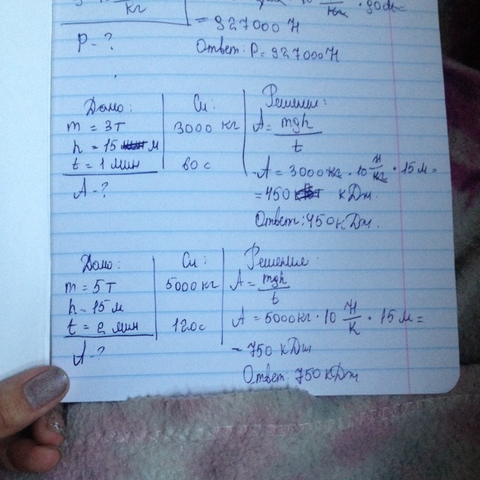 кг
= 927000 Н
P - ?
Ответ: P = 927000 Н
Дано:
m = 3 т
h = 15 м
t = 1 мин
A - ?
Си:
3000 кг
60 с
Решение:
A = mgh / t
A = 3000 кг · 10 Н/кг · 15 м =
= 450 кДж
Ответ: 450 кДж.
Дано:
m = 5 т
h = 15 м
t = 2 мин
A - ?
Си:
5000 кг
120 с
Решение:
A = mgh / t
A = 5000 кг · 10 Н/К · 15 м =
= 750 кДж
Ответ: 750 кДж